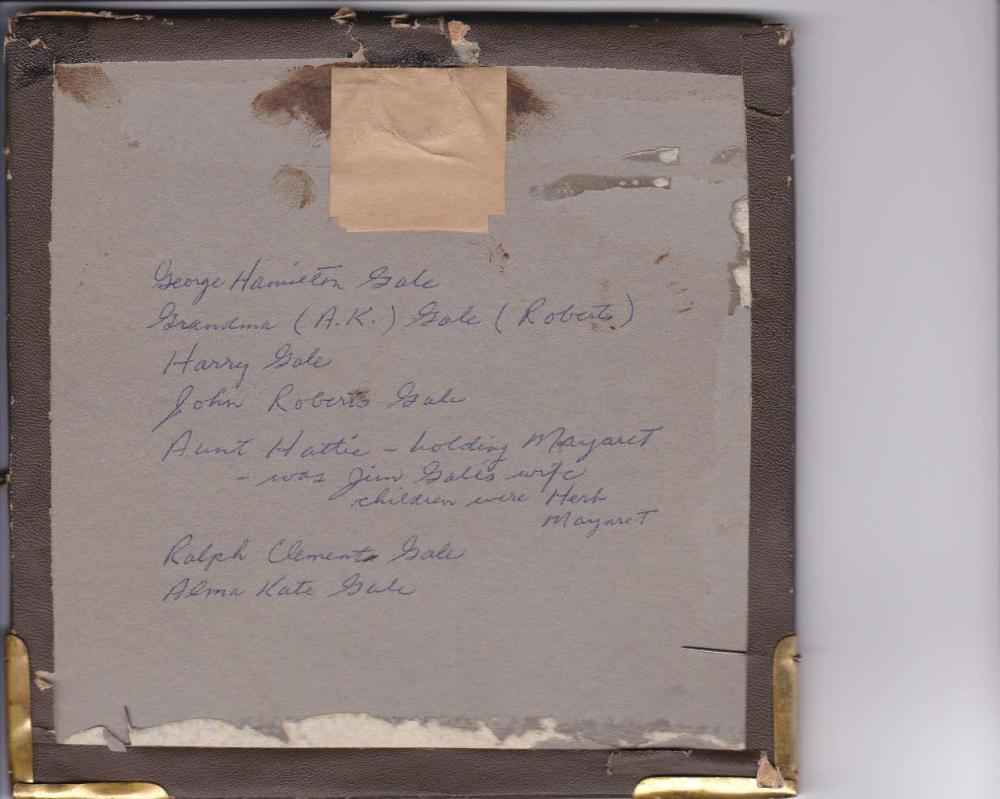 George Hamilton Gale
Grandma (A.K.) Gale (Roberts)
Harry Gale
John Roberts Gale
Aunt Hattie - holding Margaret
- was Jim Gale's wife
children were Herb
Margaret
Ralph Clements Gale
Alma Kate Gale